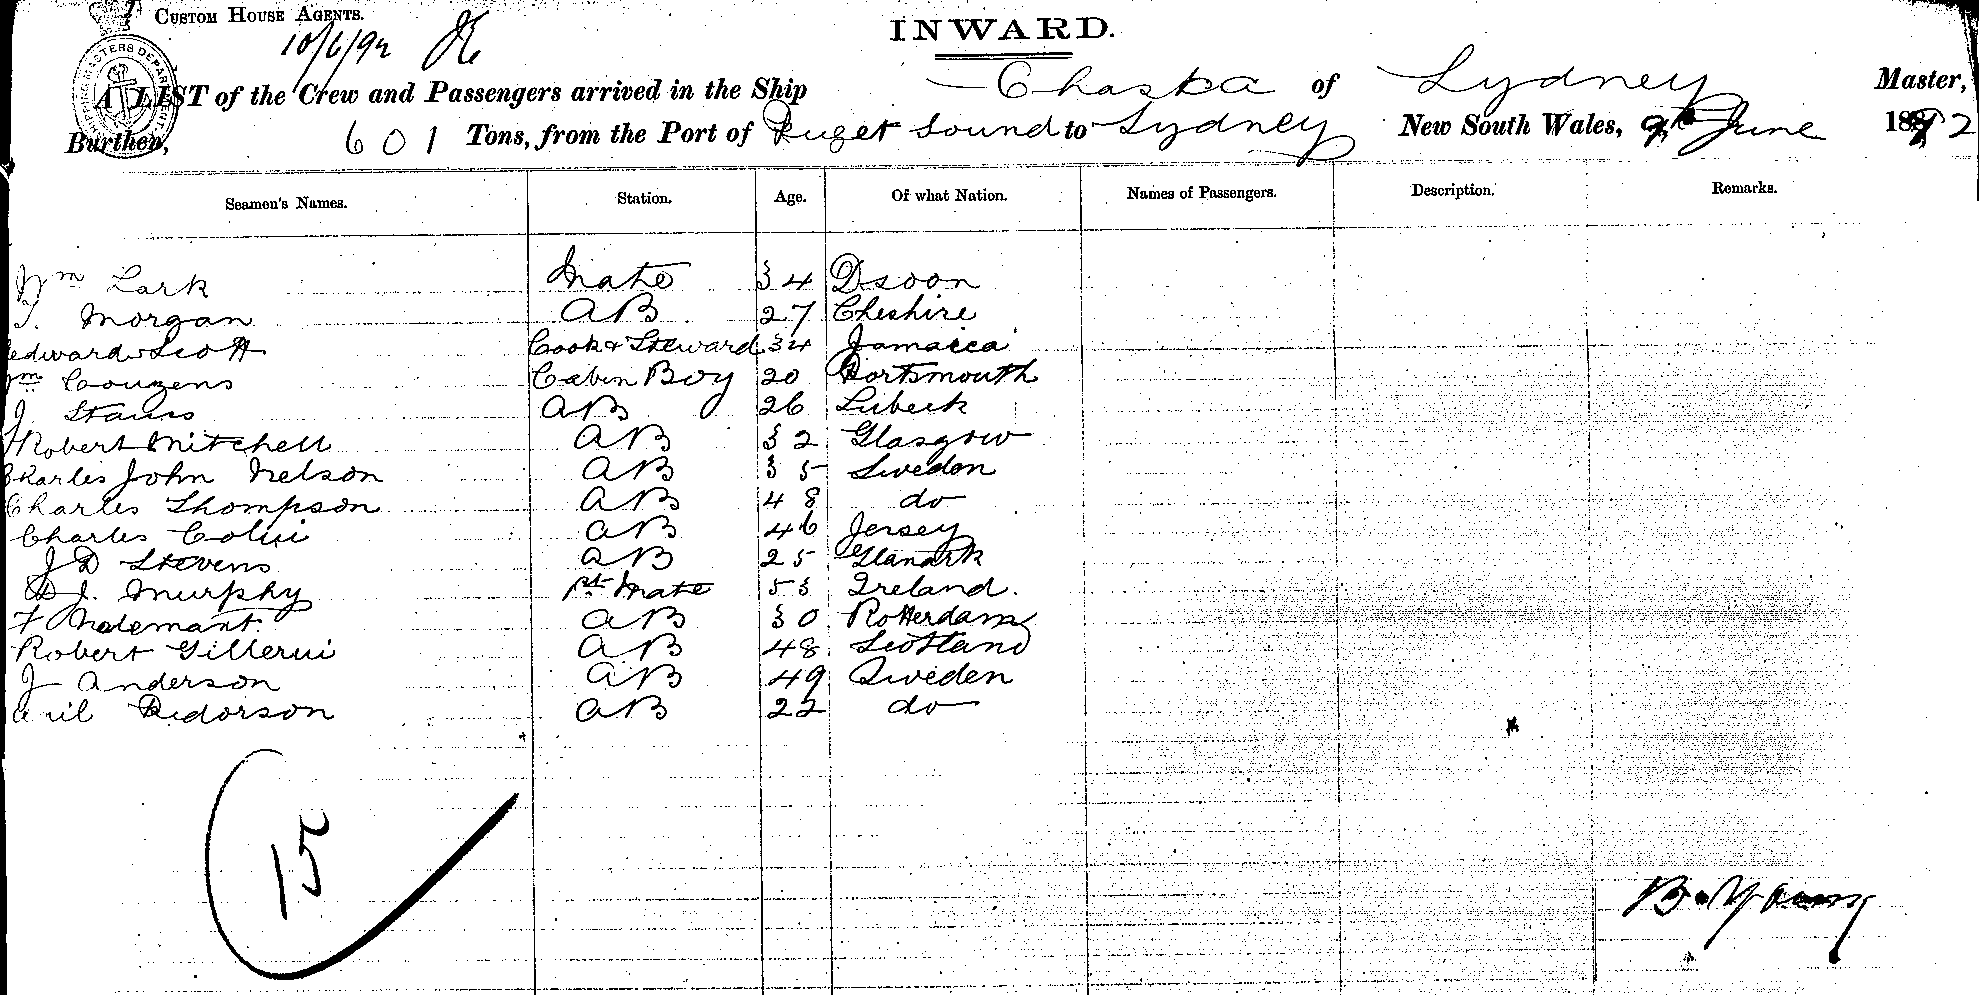 CUSTOM HOUSE AGENTS.
INWARD.
10/6/92
A LIST of the Crew and Passengers arrived in the Ship Chaska of Sydney Master,
Burthen, 601 Tons, from the Port of Puget Sound to Sydney New South Wales, 9th June 1892
Seamen's Names. Station. Age. Of what Nation. Names of Passengers. Description. Remarks.
Wm Lark Mate 34 Dsoon
T. Morgan AB 27 Cheshire
edward Scott Cook & Steward 34 Jamaica
Wm Couzens Cabin Boy 20 Portsmouth
J Stauss AB 26 Lubeck
Robert Mitchell AB 32 Glasgow
Charles John Nelson AB 35 Sweden
Charles Thompson AB 48 do
Charles Colin AB 46 Jersey
J D Stevens AB 25
D J. Murphy 1st Mate 53 Ireland.
F AB 30 Rotterdam
Robert AB 48 Scotland
J Anderson AB 49 Sweden
AB 22 do
15
B Young